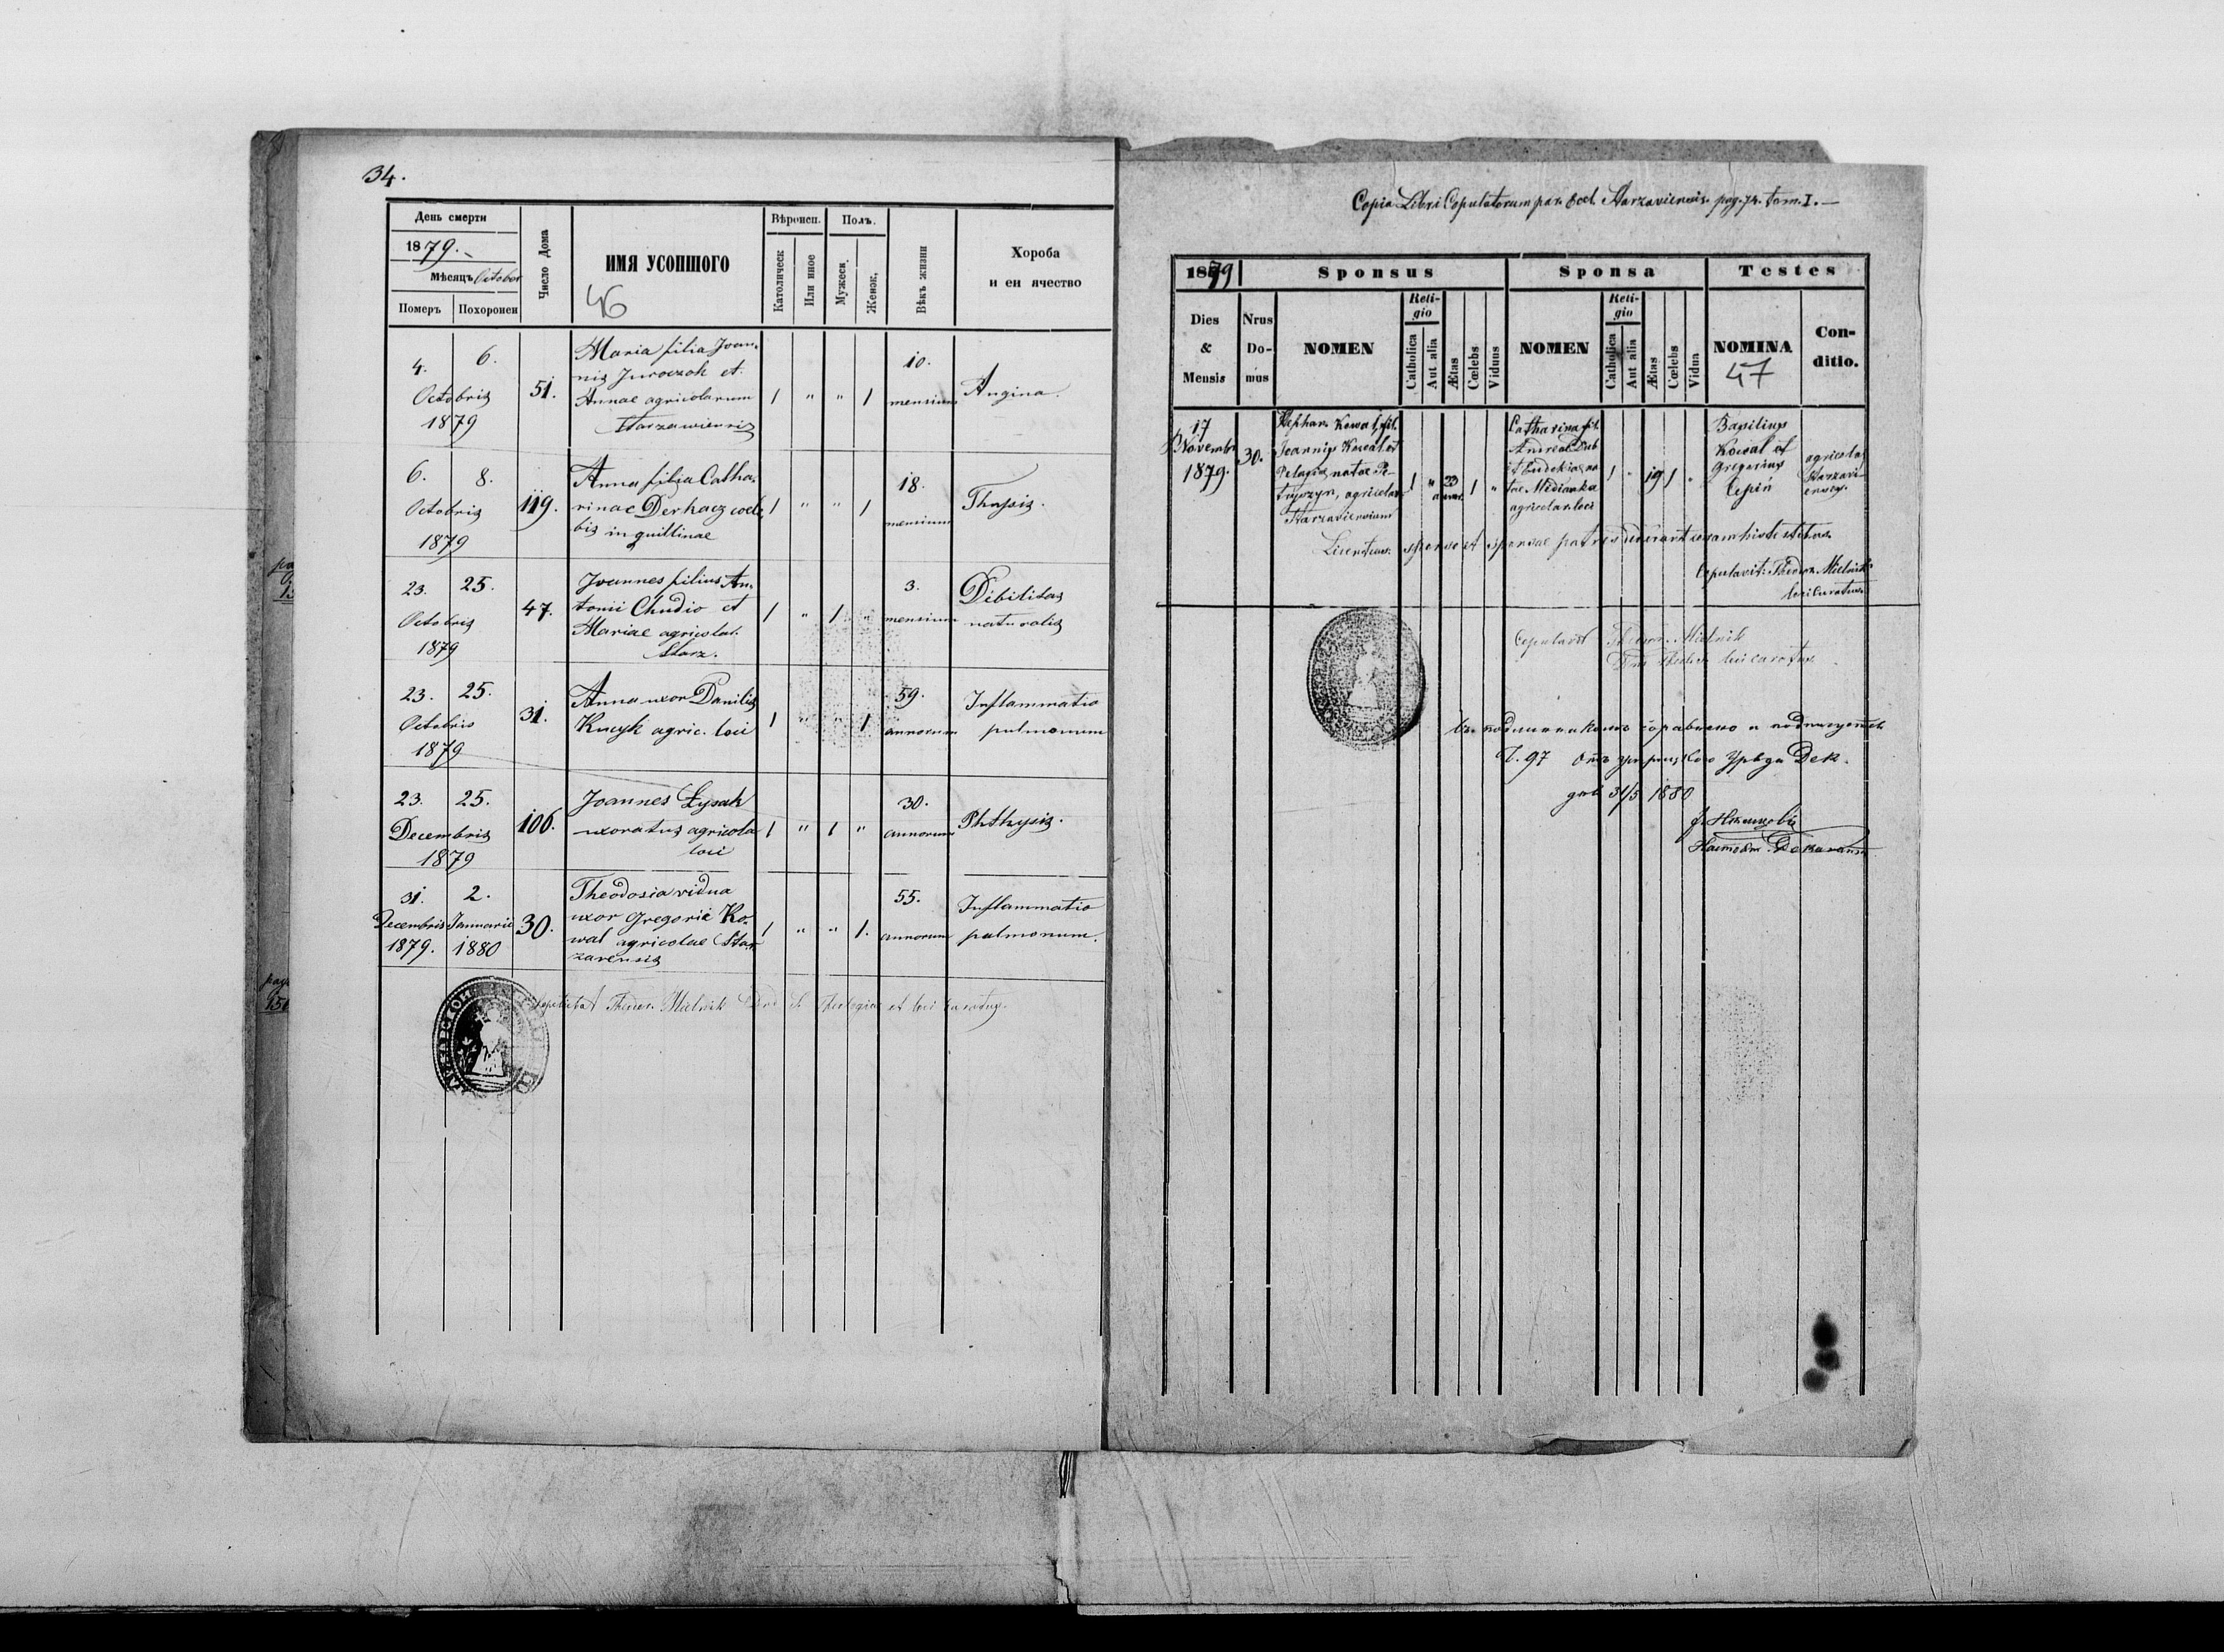 34.
День смерти
1879.
Мѣсяцъ October
Померъ Похоронен
Число Дома
ИМЯ УСОПШОГО
46
Вѣроисп.
Католическ
Или иное
Полъ.
Мужеск.
Женск.
Вѣкъ жизни
Хороба
и еи ячество
4. 6.
Octobris
1879
51.
Maria filia Joan-
nis Juroczoh et
Annae agricolarum
Starzawiensis
1 " " 1
10.
mensium
Angina.
6. 8.
Octobris
1879
119.
Anna filia Catha-
rinae Derhacz coele
bis inquillinae
1 " " 1
18.
mensium
Thysis.
23. 25.
Octobris
1879
47.
Joannes filius An-
tonii Chudio et
Mariae agricolar.
Starz.
1 " 1 "
3.
mensium
Debilitas
naturalis
23. 25.
Octobris
1879
31.
Anna uxor Danilis
Kucyk agric. loci
1 " " 1
59.
annorum
Inflammatio
pulmonum
23. 25.
Decembris
1879
106.
Joannes Łysak
uxoratus agricola
loci
1 " 1 "
30.
annorum
Phthysis.
31. 2.
Decembris Januarii
1879. 1880
30.
Theodosia vidua
uxor Gregorii Ko-
wal agricolae Star
zavensis
1 " " 1.
55.
annorum
Inflammatio
pulmonum.
Sepelivit Theodor. Mielnik et loci curatus.
Copia Libri Copulatorum par. Eccl. Starzaviensis. pag. 74. tom. I. —
1879
Sponsus Sponsa Testes
Dies
&
Mensis
Nrus
Do-
mus
NOMEN
Reli-
gio
Catholica
Aut alia
Ætas
Cœlebs
Viduus
NOMEN
Reli-
gio
Catholica
Aut alia
Ætas
Cœlebs
Vidua
NOMINA
47
Con-
ditio.
17
Novembr
1879.
30.
Stephan. Kowal, fil.
Joannis Kowal et
Pelagia natae Pe-
tryszyn, agricolar
Starzaviensium
1 " 23
annor. 1 "
Catharina fil.
Andreae Dub
et Eudokiae na
tae Midianka
agricolar. loci
1 " 19 1 "
Basilius
Kowal et
Gregorius
Cepiń
agricolae
Starzavi-
enses.
Licentiam sponso et sponsae patres dederunt coram his testibus.
Copulavit: Theodor. Mielnik
loci curatus
Copulavit Theodor. Mielnik
loci curatus
Ч. 97 Отъ Уряда Дек.
дня 31/5 1880